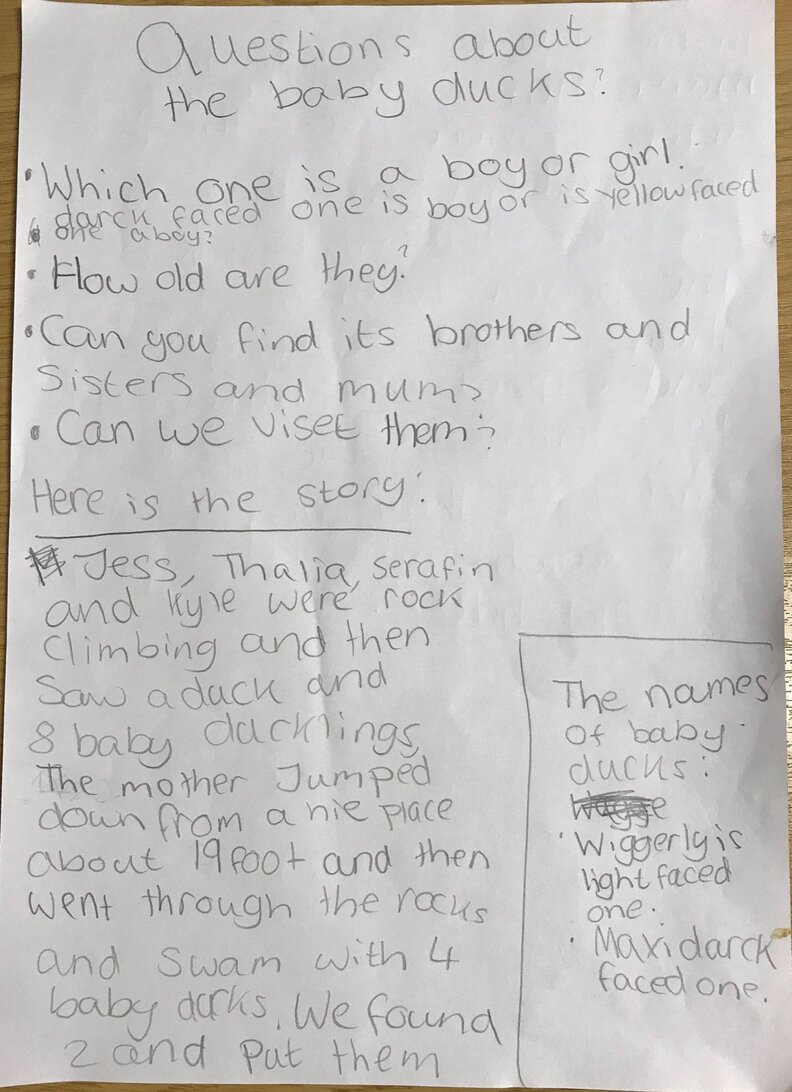 Questions about
the baby ducks?
• Which one is a boy or girl.
darck faced one is boy or is yellow faced
one a boy?
• How old are they?
• Can you find its brothers and
Sisters and mum?
• Can we viset them?
Here is the story:
Jess, Thalia, Serafin
and Kyle were rock
Climbing and then
Saw a duck and
8 baby ducklings,
The mother Jumped
down from a hie place
about 19 foot and then
went through the rocks
and swam with 4
baby ducks. We found
2 and put them
The names
of baby
ducks:
• Wiggerly is
light faced
one.
• Maxi darck
faced one.